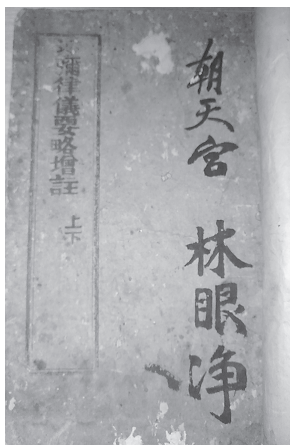 朝天宮 林眼净
沙彌律儀要略增註 上下